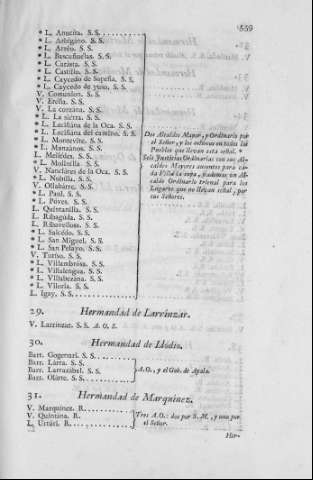 559
* L. Anucita. S. S.
* L. Arbigano. S. S.
* L. Arreo. S. S.
* L. Bascuñuelas. S. S.
* L. Caranca. S. S.
* L. Castillo. S. S.
* L. Caycedo de Sopeña. S. S.
* L. Caycedo de yuso. S. S.
V. Comunion. S. S.
V. Ereña. S. S.
V. La corzana. S. S.
* L. La sierra. S. S.
* L. Leciñana de la Oca. S. S.
* L. Leciñana del camino. S. S.
* L. Montevite. S. S.
* L. Manzanos. S. S.
L. Melledes. S. S.
* L. Molinilla. S. S.
V. Nanclares de la Oca. S. S.
* L. Nubilla. S. S.
V. Ollabarre. S. S.
* L. Paul. S. S.
* L. Poves. S. S.
L. Quintanilla. S. S.
L. Ribaguda. S. S.
L. Ribavellosa. S. S.
* L. Salcedo. S. S.
* L. San Miguel. S. S.
* L. San Pelayo. S. S.
V. Turiso. S. S.
* L. Villambrosa. S. S.
* L. Villaluenga. S. S.
* L. Villabezana. S. S.
* L. Viloria. S. S.
L. Igay. S. S.
Dos Alcaldes Mayor, y Ordinario por
el Señor, y los mismos en todos los
Pueblos que llevan esta señal. *
Seis Justicias Ordinarias con sus Al-
caldes Mayores
caldo Ordinario trienal para los
Lugares que no llevan señal, por
sus Señores.
29. Hermandad de Larrinzar.
V. Larrinzar. S. S. A. O. S.
30. Hermandad de Llodio.
Barr. Gogenuri. S. S.
Barr. Larra. S. S.
Barr. Larrazabel. S. S.
Barr. Olarte. S. S.
A.O., y el Gob. de Ayala.
31. Hermandad de Marquinez.
V. Marquinez. R.
V. Quintana. R.
L. Urturi. R.
Tres A.O.: dos por S. M., y uno por
el Señor.
Her-